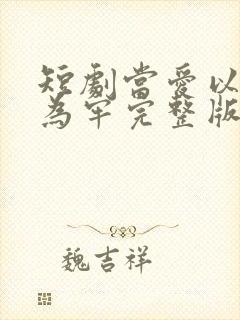 短劇當愛以
為牢完整版
魏吉祥